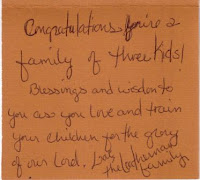 Congratulations You're a
family of three Kids!
Blessings and wisdom to
you as you Love and train
your children for the glory
of our Lord.
family